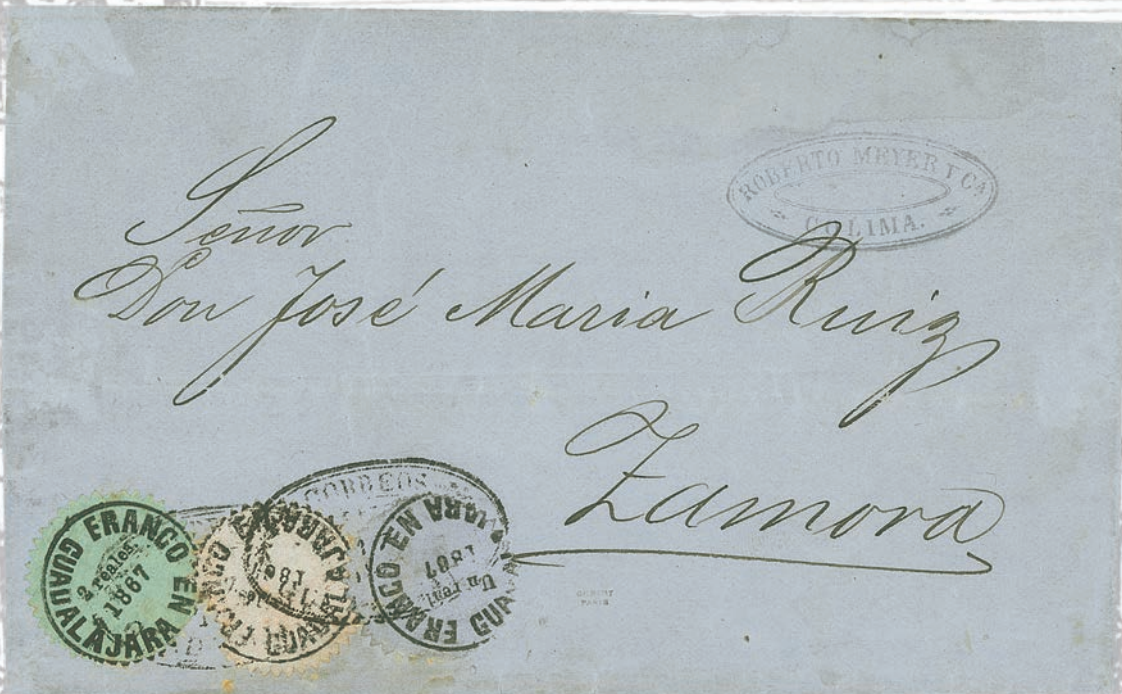 ROBERTO MEYER Y CA
COLIMA.
Señor
Don José Maria Ruiz
Zamora
CORREOS
FRANCO EN GUADALAJARA
2 reales.
1867
FRANCO EN GUADALAJARA
1867
FRANCO EN GUADALAJARA
Un real
1867
PARIS